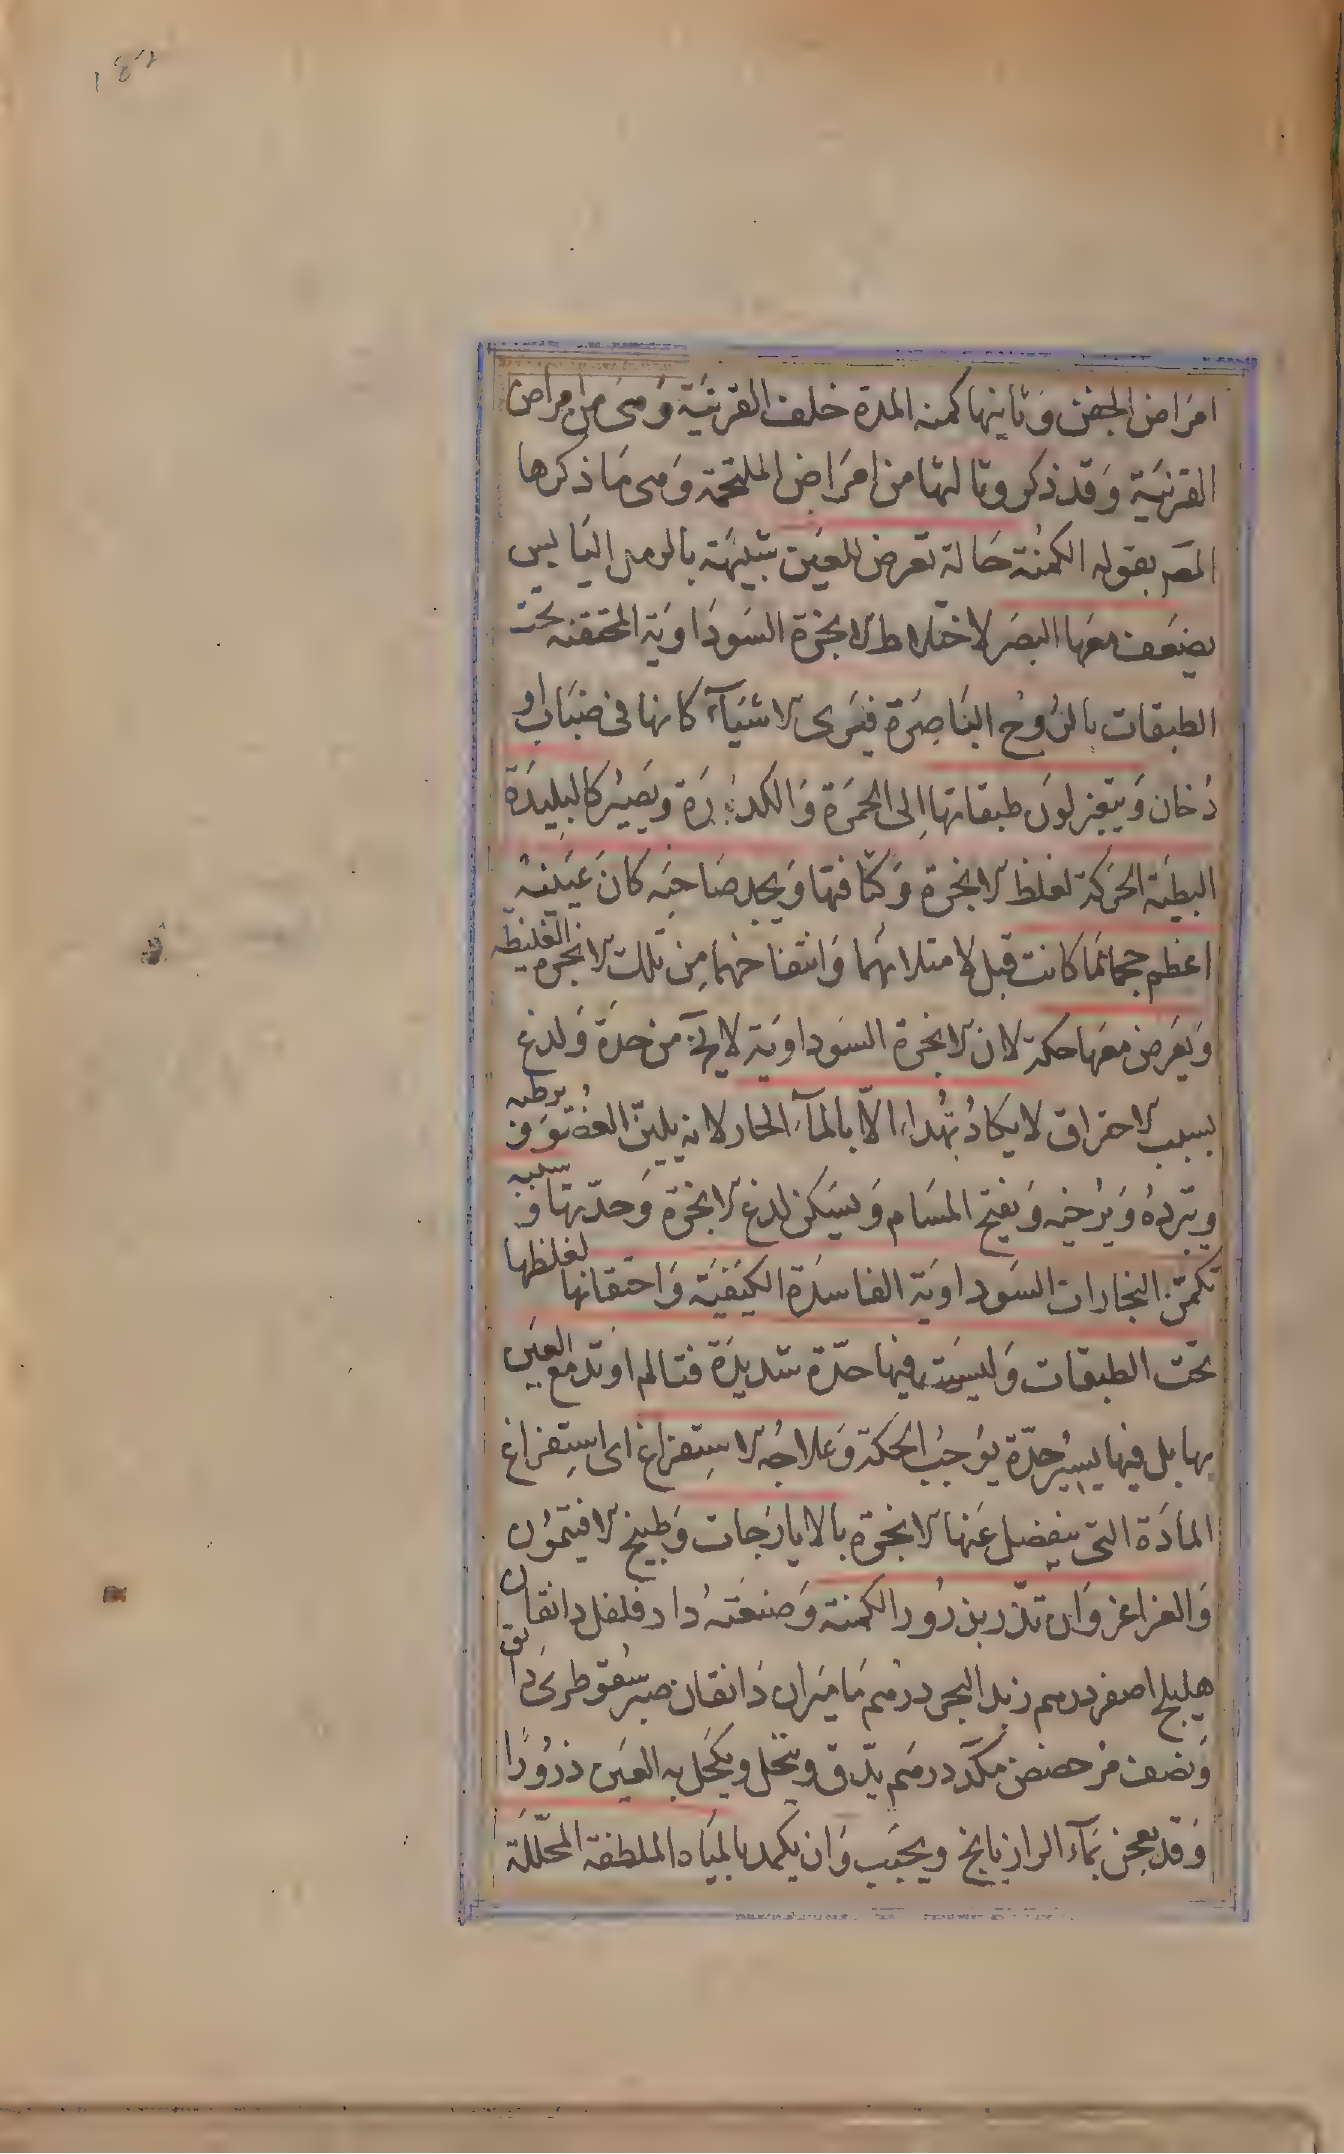 امراض الجفن وثانيها كمنه المدة خلف القرنية وهى من امراض
القرنية وقد ذكر وثالثها من امراض الملتحمة وهى ما ذكرها
المصم بقوله الكمنة حالة تعرض للعين شبيهة بالرمد اليابس
يضعف معها البصر لاختلاط الابخرة السوداوية المحتقنه تحت
الطبقات بالروح الباصرة فيرى الاشياء كانها فى ضباب او
دخان ويتغير لون طبقاتها الى الحمرة والكدورة ويصير كالبليدة
البطيئة الحركة لغلظ الابخرة وكثافتها ويجد صاحبه كان عينيه
اعظم حجما مما كانت قبل لامتلائهما وانتفاخهما من تلك الابخرة الغليظه
ويعرض معها حكة لان الابخرة السوداوية لا يخ من حدة ولدغ
بسبب الاحتراق لا يكاد تهداء الا بالماء الحار لانه يلين العضو ويرطبه
ويبرده ويرخيه ويفتح المسام ويسكن لدغ الابخرة وحدتها وسببه
تكمن البخارات السوداوية الفاسدة الكيفية واحتقانها لغلظها
تحت الطبقات وليست فيها حدة شديدة فتالم او تدمع العين
بها بل فيها يسير حدة يوجب الحكة وعلاجه الاستفراغ اى استفراغ
المادة التى ينفصل عنها الابخرة بالايارجات وطبيخ الافتيمون
والغراغر وان تذر بذرور الكمنة وصنعته دار فلفل دانقان
هليلج اصفر درهم زبد البحر درهم ماميران دانقان صبر سقوطرى دانق
ونصف حضض مكد درهم يدق وينخل ويكحل به العين ذرورا
وقد يعجن بماء الرازيانج ويحبب وان يكمد بالمياه الملطفة المحللة